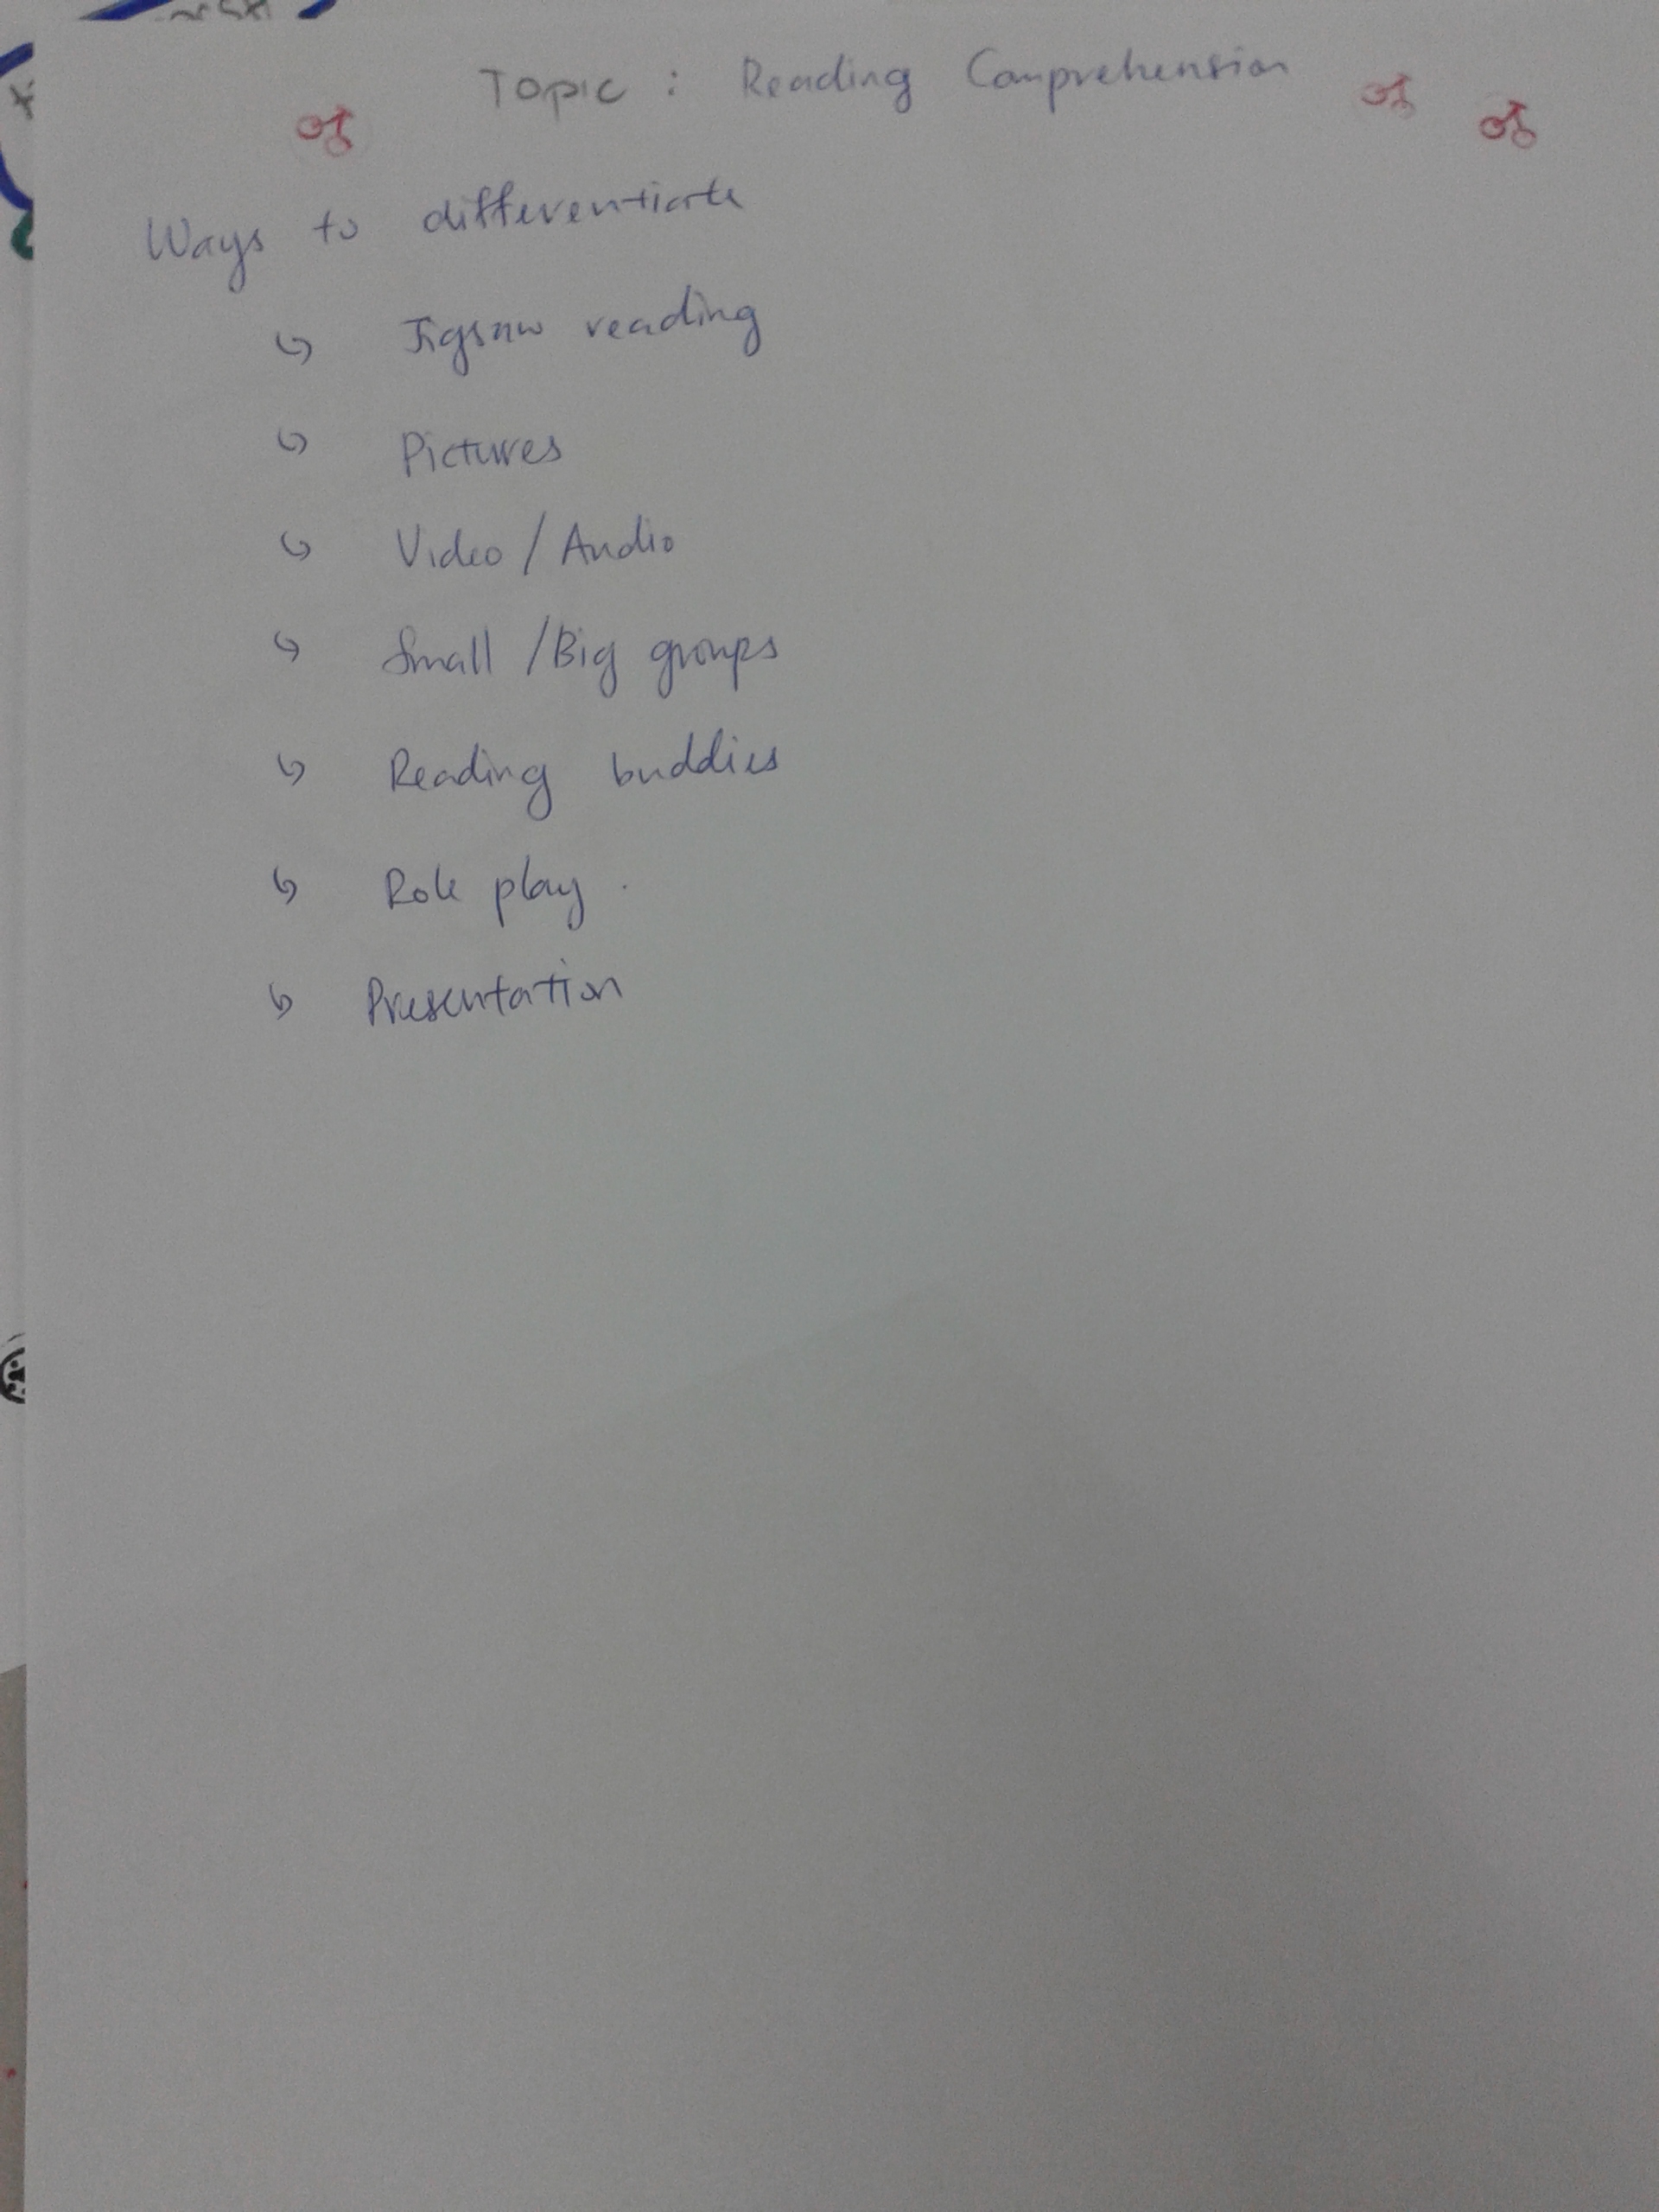 Topic : Reading Comprehension
Ways to differentiate
Jigsaw reading
Pictures
Video / Audio
Small / Big groups
Reading buddies
Role play.
Presentation